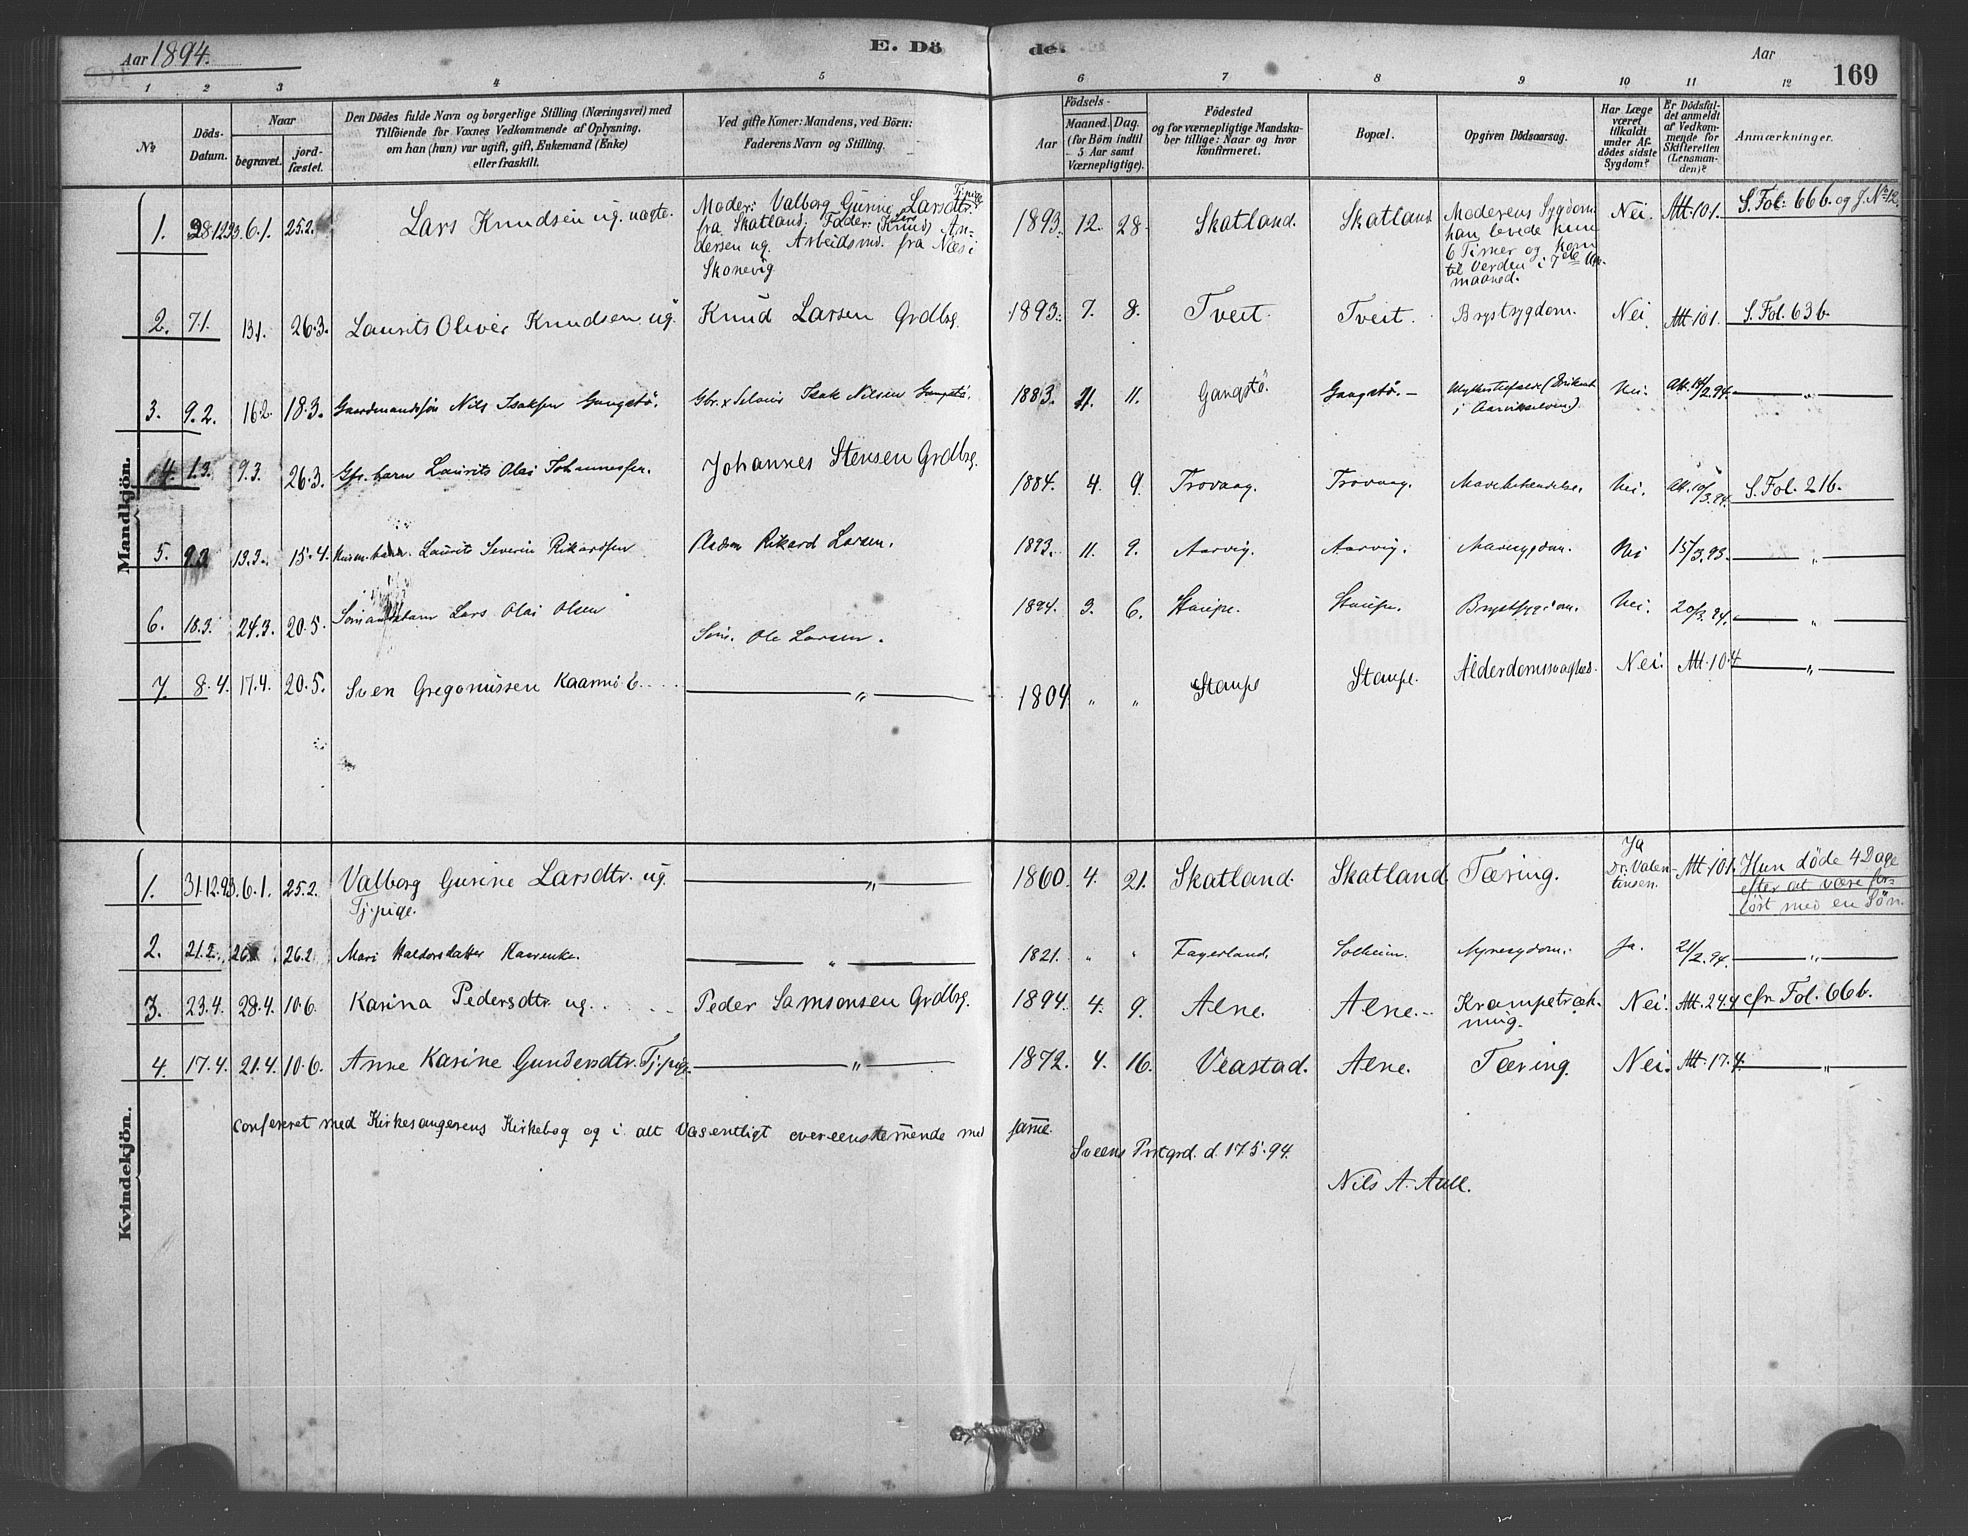 Aar 1894. E. Dö de. Aar 169
1 2 3 4 5 6 7 8 9 10 11 12
№
Döds-Datum.
Naar
begravet.
jordfæstet.
Den Dödes fulde Navn og borgerlige Stilling (Næringsvei) med
Tilföiende for Voxnes Vedkommende af Oplysning,
om han (hun) var ugift, gift, Enkemand (Enke)
eller fraskilt.
Ved gifte Koner: Mandens, ved Börn:
Faderens Navn og Stilling.
Födsels-
Aar
Maaned. Dag.
(for Börn indtil
5 Aar samt
Værnepligtige).
Födested
og for værnepligtige Mandska-
ber tillige: Naar og hvor
konfirmeret.
Bopæl.
Opgiven Dödsaarsag.
Har Læge
været
tilkaldt
under Af-
dödes sidste
Sygdom?
Er Dödsfal-
det anmeldt
af Vedkom-
mende for
Skifteretten
(Lensman-
den)?
Anmærkninger.
Mandkjön.
1. 28.12.93. 6.1. 25.2. Lars Knudsen ug. uægte.
Moder: Valborg Gurine Larsdtr. Tj.pige
fra Skatland; Fader: (Knud) Lars An-
dersen ug. Arbeidsmd. fra Næs i
Skonevig
1893. 12. 28. Skatland. Skatland
Moderens Sygdom
han levede kun
6 Timer og kom
til Verden i 7de
maaned.
Nei. Att. 10 1. S. Fol: 66 b. og J. № 12.
2. 7.1. 13.1. 26.3. Laurits Oliver Knudsen ug. Knud Larsen Grdbrg. 1893. 7. 8. Tveit. Tveit. Brystsygdom. Nei. Att. 10 1. S. Fol. 63 b.
3. 9.2. 16.2. 18.3. Gaardmandssön Nils Isaksen Gangstö. Gbr. x Selveier Isak Nilsen Gangstö. 1883. 11. Gangstö. Gangstö. — Nei. Att. 14/2.94. — „ —
4. 1.3. 9.3. 26.3. Gbr. barn Laurits Olai Johannessen. Johannes Stensen Grdbrg. 1884. 4. 9. Trovaag. Trovaag. Nei. Att. 10/3.94. S. Fol. 21 b.
5. 9.3 13.3. 15.4. Husm. barn. Laurits Severin Rikardsen Pladsm Rikard Larsen. 1893. 11. 9. Aarvig. Aarvig. Mavesygdom. Nei 15/3.93. — „ —
6. 18.3. 24.3. 20.5. Lars Olai Olsen Ole Larsen. 1894. 3. 6. Staupe. Staupe. Brystsygdom. Nei. 20/3.94. — „ —
7. 8.4. 17.4. 20.5. Sven Gregoriussen Kaarmö E. — „ — 1804 „ „ Staupe Staupe. Alderdomssvaghed. Nei. Att. 10.4 — „ —
Kvindekjön.
1. 31.12.93. 6.1. 25.2. Valborg Gurine Larsdtr. ug.
Tj.pige.
— „ — 1860. 4. 21. Skatland. Skatland. Tæring.
Ja
Dr. Valen-
tinsen.
Att 10 1.
Hun döde 4 Dage
efter at være for-
löst med en Sön.
2. 21.2. 26.2. Mari Haldorsdatter — „ — 1821. „ „ Fagerland. Solheim. Nyresygdom. Ja. 21/2.94. — „ —
3. 23.4. 28.4. 10.6. Karina Pedersdtr. ug. Peder Samsonsen Grdbrg. 1894. 4. 9. Alne. Alne. —
Krampetræk-
ning.
Nei. Att. 24.4 cfr. Fol. 66 b.
4. 17.4. 21.4. 10.6. Anne Karine Gundersdtr. Tj.pige. — „ — 1872. 4. 16. Veastad. Alne. Tæring. Nei. Att. 17.4. — „ —
confereret med Kirkesangerens Kirkebog og i alt Væsentligt overeensstemmende med samme.
Sveens Prstgrd. d. 17.5.94.
Nils A. Aall.